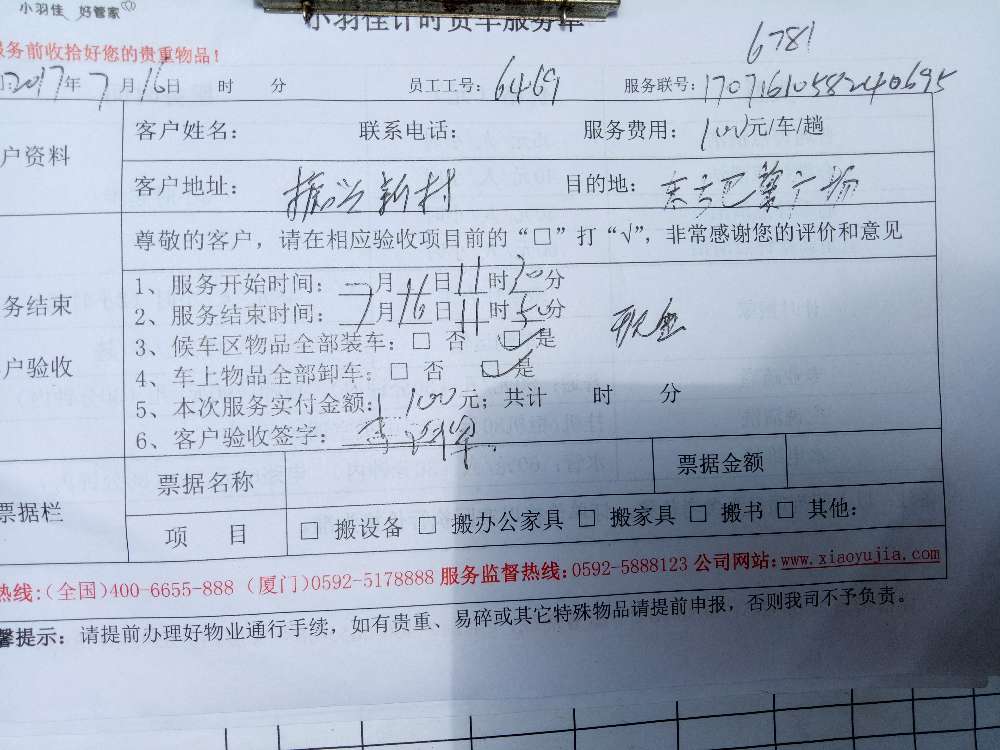 小羽佳 好管家
小羽佳计时货车服务单
服务前收拾好您的贵重物品！
6781
2017年7月16日 时 分 员工工号：6469 服务联号：17071610582240695
户资料 客户姓名： 联系电话： 服务费用：100元/车/趟
客户地址：振兴新村 目的地：东方巴黎广场
尊敬的客户，请在相应验收项目前的“□”打“√”，非常感谢您的评价和意见
务结束
户验收
1、服务开始时间：月16日11时20分
2、服务结束时间：7月16日11时50分
现金
3、候车区物品全部装车：□ 否 ☑ 是
4、车上物品全部卸车：□ 否 ☑ 是
5、本次服务实付金额：100元；共计 时 分
6、客户验收签字：
票据栏 票据名称 票据金额
项 目 □ 搬设备 □ 搬办公家具 □ 搬家具 □ 搬书 □ 其他：
热线：(全国)400-6655-888 (厦门)0592-5178888 服务监督热线：0592-5888123 公司网站：www.xiaoyujia.com
馨提示：请提前办理好物业通行手续，如有贵重、易碎或其它特殊物品请提前申报，否则我司不予负责。